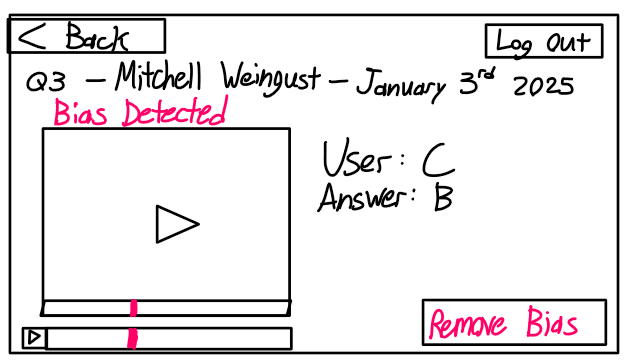 < Back
Log Out
Q3 - Mitchell Weingust - January 3rd 2025
Bias Detected
User: C
Answer: B
Remove Bias